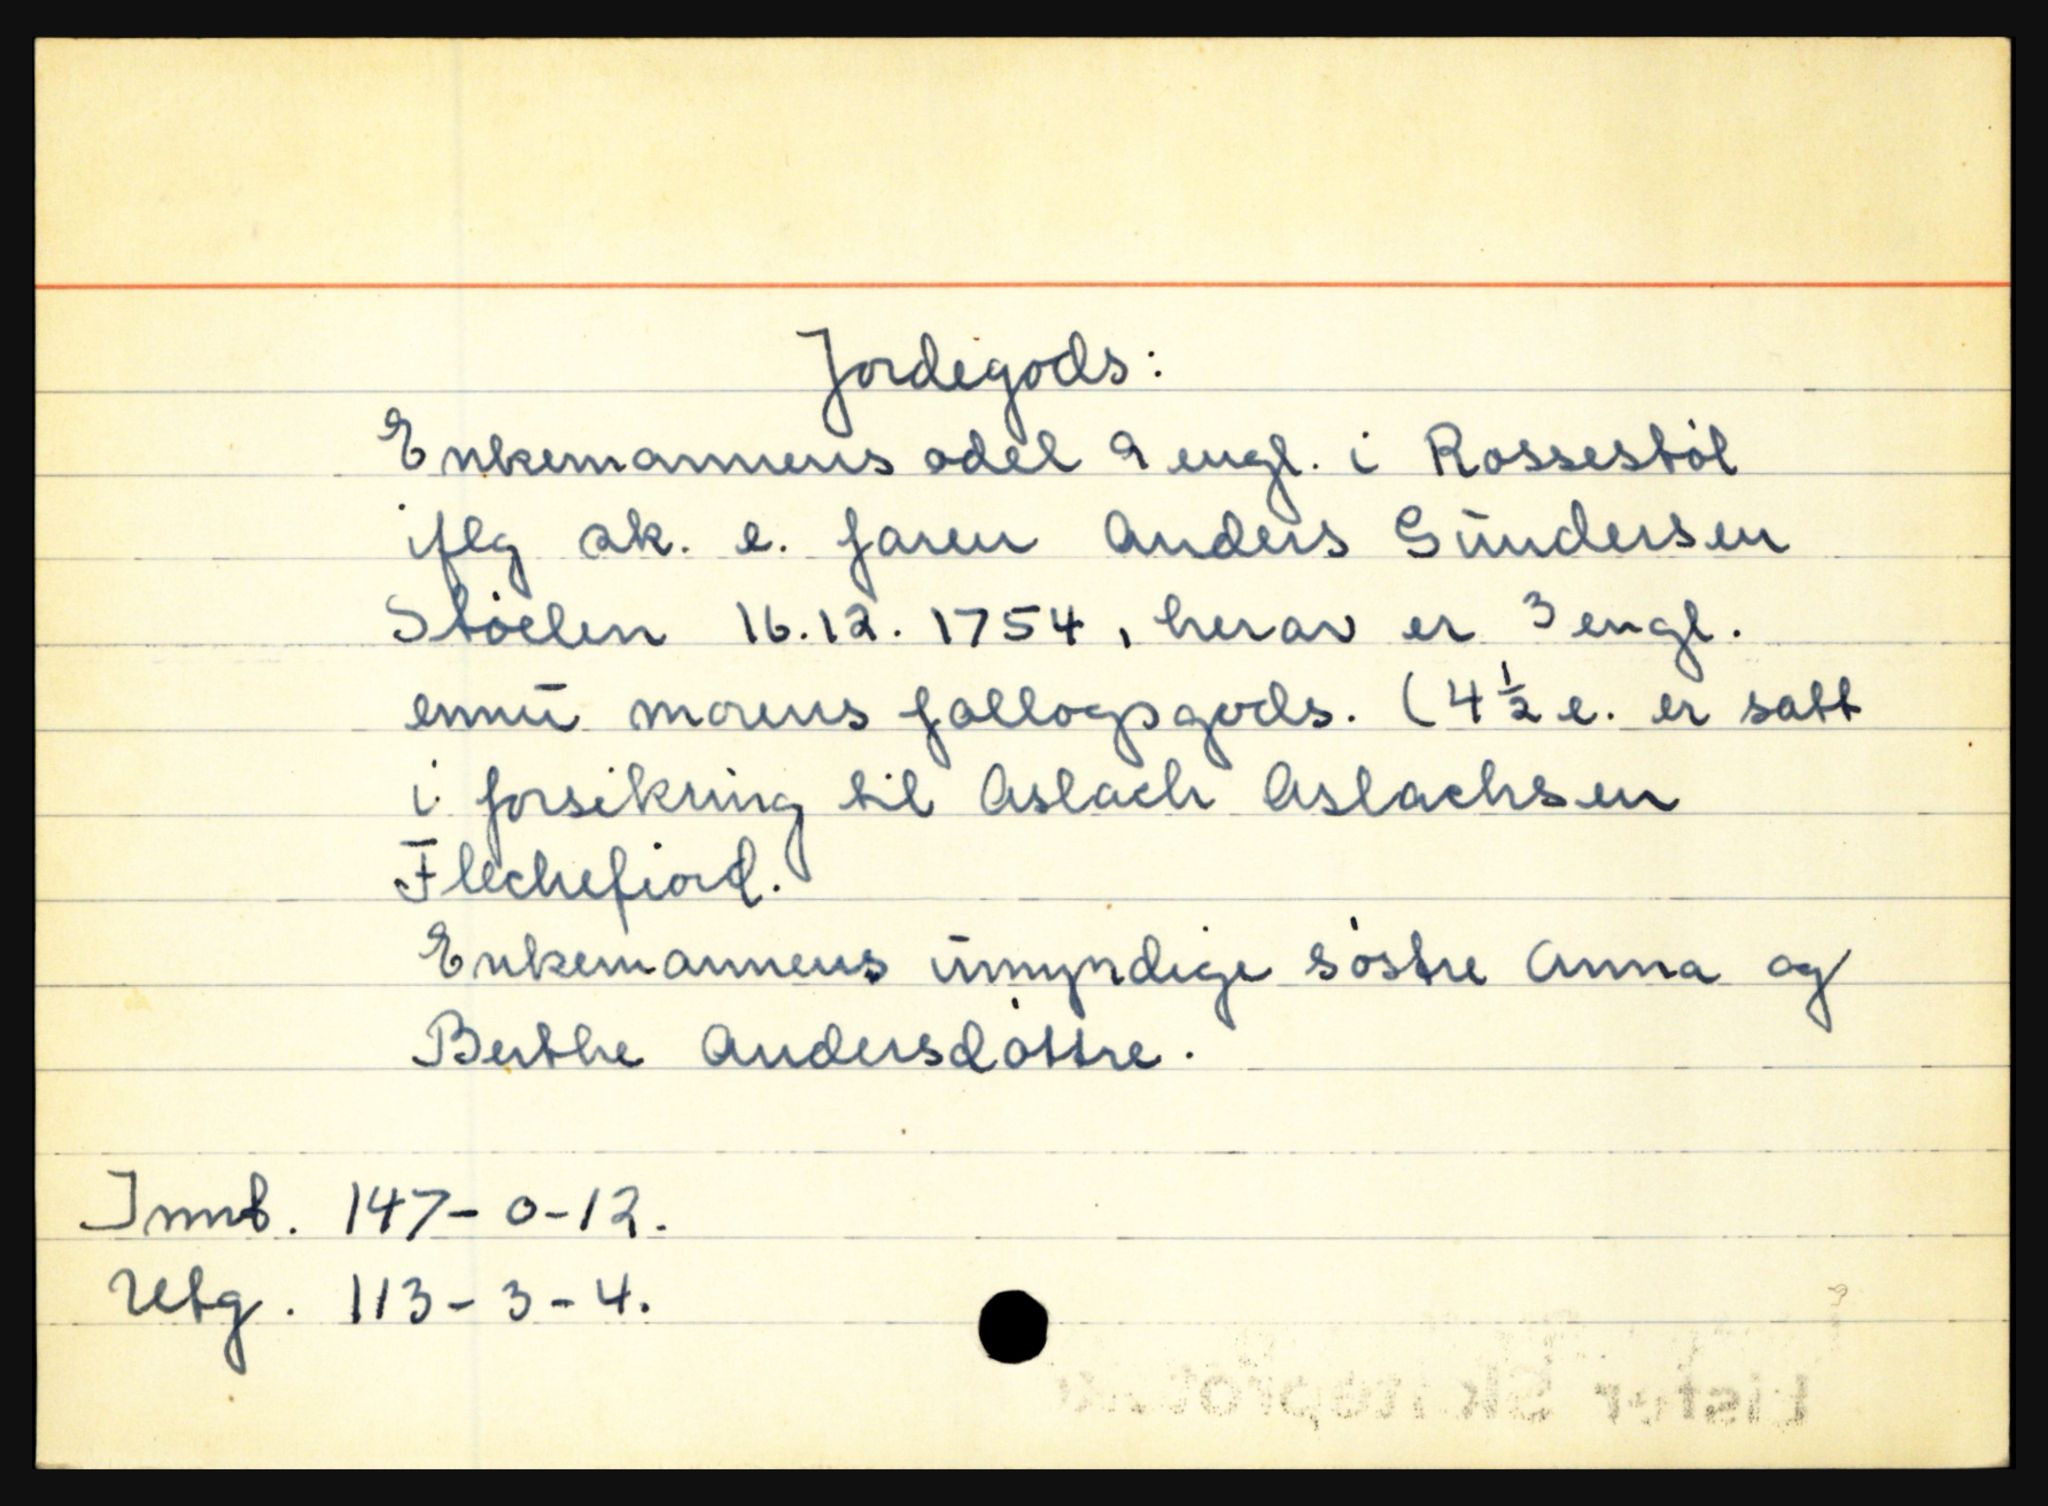 Jordegods:
Enkemannens odel 9 engl. i Rossestöl
iflg sk. e. faren Anders Gundersen
Stöelen 16.12.1754, herav er 3 engl.
ennu morens fallogsgods. (4½ e. er satt
i forsikring til Aslach Aslachsen
Flechefiord.
Enkemannens umyndige söstre Anna og
Berthe Andersdöttre.
Innb. 147-0-12.
Utg. 113-3-4.
Lister Skifteprotok